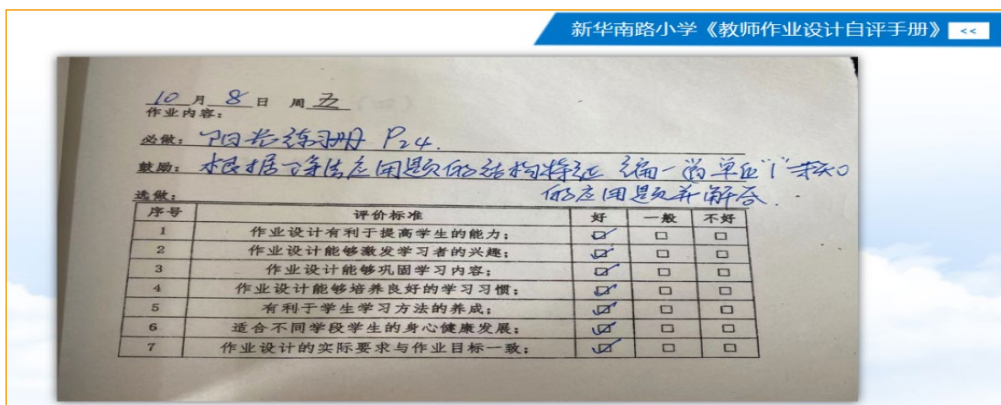 新华南路小学《教师作业设计自评手册》 <<
10月8日 周五
作业内容：
必做：阳光练习册 P24.
鼓励：根据除法应用题的结构特征 编一道单位"1"未知
的应用题并解答.
选做：
序号 评价标准 好 一般 不好
1 作业设计有利于提高学生的能力； ☑ □ □
2 作业设计能够激发学习者的兴趣； ☑ □ □
3 作业设计能够巩固学习内容； ☑ □ □
4 作业设计能够培养良好的学习习惯； ☑ □ □
5 有利于学生学习方法的养成； ☑ □ □
6 适合不同学段学生的身心健康发展； ☑ □ □
7 作业设计的实际要求与作业目标一致； ☑ □ □